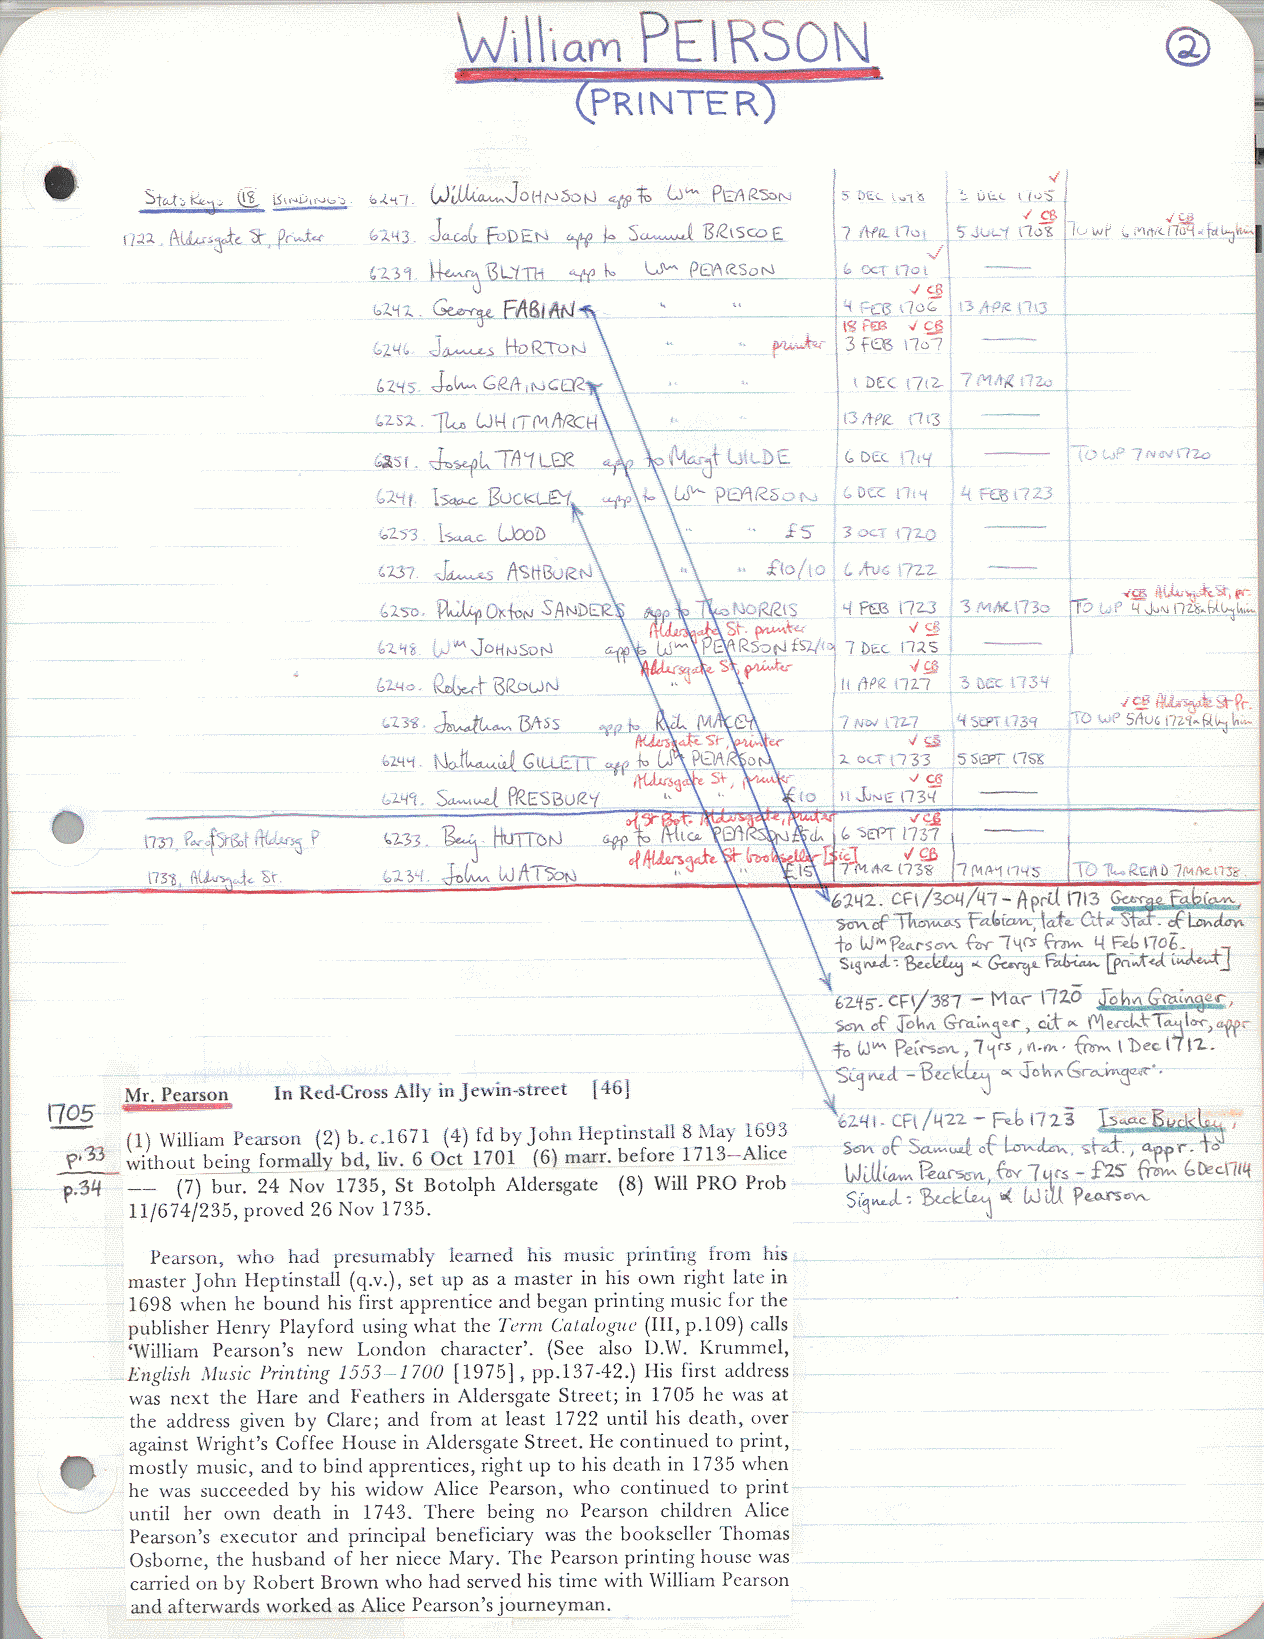 William PEIRSON
②
(PRINTER)
Stats Key: ⑱ BINDINGS. 6247. William JOHNSON app to Wm PEARSON 5 DEC 1698 3 DEC 1705 ✓
1722, Aldersgate St, Printer 6243. Jacob FODEN app to Samuel BRISCOE 7 APR 1701 5 JULY 1708 ✓ CB TO WP 6 MAR 1709 ✓ CB
6239. Henry BLYTH app to Wm PEARSON 6 OCT 1701 ✓ —
6242. George FABIAN " " 4 FEB 1706 ✓ CB 13 APR 1713
18 FEB ✓ CB
6246. James HORTON " " printer 3 FEB 1707 —
6245. John GRAINGER " " 1 DEC 1712 7 MAR 1720
6252. Tho WHITMARCH " " 13 APR 1713 —
6251. Joseph TAYLER app to Margt WILDE 6 DEC 1714 — TO WP 7 NOV 1720
6241. Isaac BUCKLEY app to Wm PEARSON 6 DEC 1714 4 FEB 1723
6253. Isaac WOOD " " £5 3 OCT 1720 —
6237. James ASHBURN " " £10/10 6 AUG 1722 —
✓CB Aldersgate St, pr.
6250. Philip Oxton SANDERS app to Tho NORRIS 4 FEB 1723 3 MAR 1730 TO WP 4 JUN 1728 & fd by him
Aldersgate St. printer ✓ CB
6248. Wm JOHNSON app to Wm PEARSON £52/10 7 DEC 1725 —
Aldersgate St, printer ✓ CB
6240. Robert BROWN " " 11 APR 1727 3 DEC 1734
✓ CB Aldersgate St Pr.
6238. Jonathan BASS app to Rich MACEY 7 NOV 1727 4 SEPT 1739 TO WP 5 AUG 1729 & fd by him
Aldersgate St, printer ✓ CB
6244. Nathaniel GILLETT app to Wm PEARSON 2 OCT 1733 5 SEPT 1758
Aldersgate St, printer ✓ CB
6249. Samuel PRESBURY " " £10 11 JUNE 1734 —
of St Bot. Aldersgate, printer ✓ CB
1737, Par of St Bot Aldersg P 6233. Benj. HUTTON app to Alice PEARSON £5ch 6 SEPT 1737 —
of Aldersgate St bookseller [sic] ✓ CB
1738, Aldersgate St. 6234. John WATSON " " £15 7 MAR 1738 7 MAY 1745 TO Tho READ 7 MAR 1738.
6242. CF1/304/47 – April 1713 George Fabian,
son of Thomas Fabian, late Cit & Stat. of London
to Wm Pearson for 7 yrs from 4 Feb 1706.
Signed: Beckley & George Fabian [printed indent]
6245. CF1/387 – Mar 1720 John Grainger,
son of John Grainger, cit & Mercht Taylor, appr
to Wm Peirson, 7 yrs, n.m. from 1 Dec 1712.
Signed – Beckley & John Grainger.
6241. CF1/422 – Feb 1723 Isaac Buckley,
son of Samuel of London, stat., appr. to
William Pearson, for 7 yrs – £25 from 6 Dec 1714
Signed: Beckley & Will Pearson
1705
p.33
p.34
Mr. Pearson In Red-Cross Ally in Jewin-street [46]
(1) William Pearson (2) b. c.1671 (4) fd by John Heptinstall 8 May 1693
without being formally bd, liv. 6 Oct 1701 (6) marr. before 1713—Alice
—— (7) bur. 24 Nov 1735, St Botolph Aldersgate (8) Will PRO Prob
11/674/235, proved 26 Nov 1735.
Pearson, who had presumably learned his music printing from his
master John Heptinstall (q.v.), set up as a master in his own right late in
1698 when he bound his first apprentice and began printing music for the
publisher Henry Playford using what the Term Catalogue (III, p.109) calls
‘William Pearson’s new London character’. (See also D.W. Krummel,
English Music Printing 1553–1700 [1975], pp.137-42.) His first address
was next the Hare and Feathers in Aldersgate Street; in 1705 he was at
the address given by Clare; and from at least 1722 until his death, over
against Wright’s Coffee House in Aldersgate Street. He continued to print,
mostly music, and to bind apprentices, right up to his death in 1735 when
he was succeeded by his widow Alice Pearson, who continued to print
until her own death in 1743. There being no Pearson children Alice
Pearson’s executor and principal beneficiary was the bookseller Thomas
Osborne, the husband of her niece Mary. The Pearson printing house was
carried on by Robert Brown who had served his time with William Pearson
and afterwards worked as Alice Pearson’s journeyman.